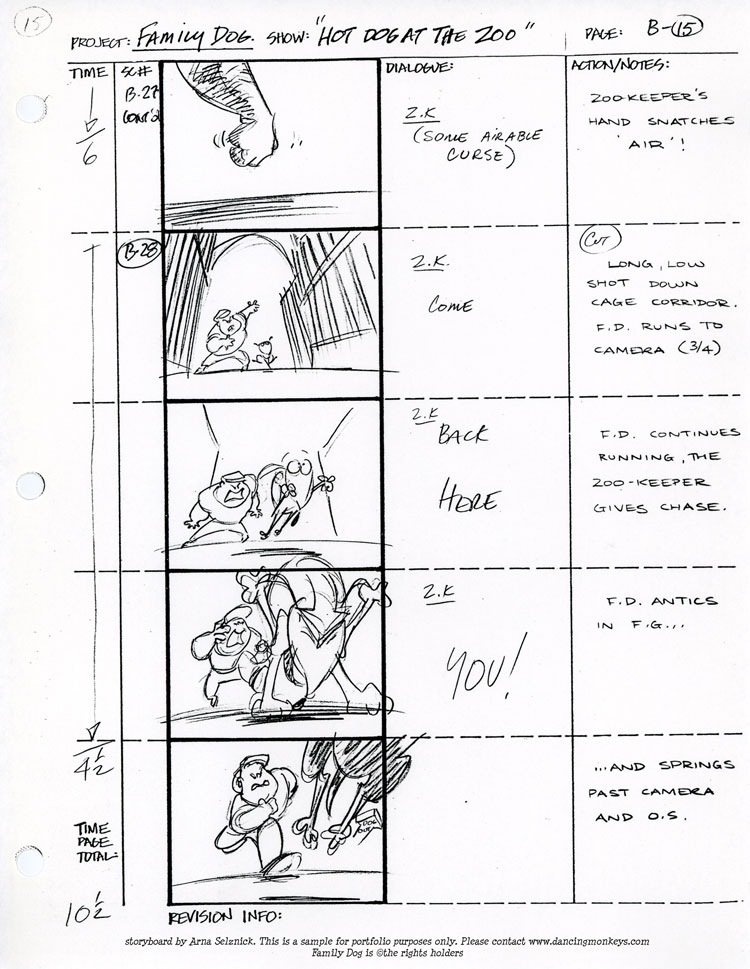 15
PROJECT: FAMILY DOG. SHOW: "HOT DOG AT THE ZOO" PAGE: B-15
TIME SC# DIALOGUE: ACTION/NOTES:
B-27
CONT'D
6
Z.K
(SOME AIRABLE
CURSE)
ZOO-KEEPER'S
HAND SNATCHES
'AIR'!
B-28
Z.K.
COME
CUT
LONG, LOW
SHOT DOWN
CAGE CORRIDOR.
F.D. RUNS TO
CAMERA (3/4)
Z.K
BACK
HERE
F.D. CONTINUES
RUNNING, THE
ZOO-KEEPER
GIVES CHASE.
Z.K
YOU!
F.D. ANTICS
IN F.G...
4 1/2
...AND SPRINGS
PAST CAMERA
AND O.S.
TIME
PAGE
TOTAL:
10 1/2
REVISION INFO:
storyboard by Arna Selznick. This is a sample for portfolio purposes only. Please contact www.dancingmonkeys.com
Family Dog is ©the rights holders